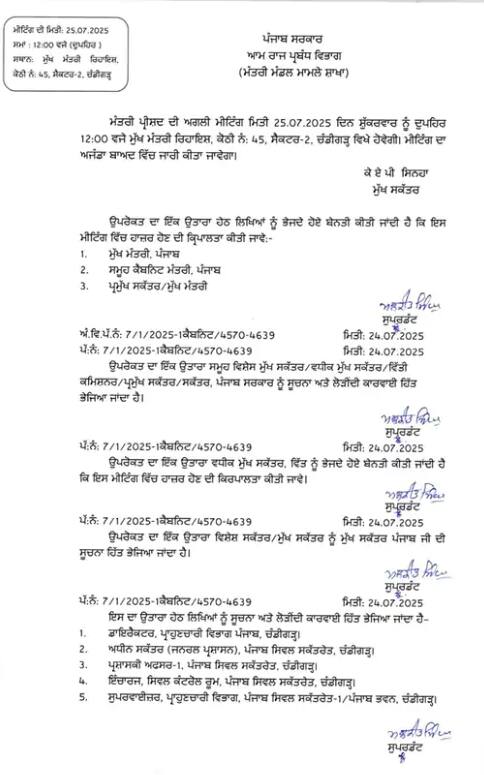 ਮੀਟਿੰਗ ਦੀ ਮਿਤੀ: 25.07.2025
ਸਮਾਂ : 12:00 ਵਜੇ (ਦੁਪਹਿਰ )
ਸਥਾਨ: ਮੁੱਖ ਮੰਤਰੀ ਰਿਹਾਇਸ਼,
ਕੋਠੀ ਨੰ: 45, ਸੈਕਟਰ-2, ਚੰਡੀਗੜ੍ਹ
ਪੰਜਾਬ ਸਰਕਾਰ
ਆਮ ਰਾਜ ਪ੍ਰਬੰਧ ਵਿਭਾਗ
(ਮੰਤਰੀ ਮੰਡਲ ਮਾਮਲੇ ਸ਼ਾਖਾ)
ਮੰਤਰੀ ਪ੍ਰੀਸ਼ਦ ਦੀ ਅਗਲੀ ਮੀਟਿੰਗ ਮਿਤੀ 25.07.2025 ਦਿਨ ਸ਼ੁੱਕਰਵਾਰ ਨੂੰ ਦੁਪਹਿਰ
12:00 ਵਜੇ ਮੁੱਖ ਮੰਤਰੀ ਰਿਹਾਇਸ਼, ਕੋਠੀ ਨੰ: 45, ਸੈਕਟਰ-2, ਚੰਡੀਗੜ੍ਹ ਵਿਖੇ ਹੋਵੇਗੀ। ਮੀਟਿੰਗ ਦਾ
ਅਜੰਡਾ ਬਾਅਦ ਵਿੱਚ ਜਾਰੀ ਕੀਤਾ ਜਾਵੇਗਾ।
ਕੇ ਏ ਪੀ ਸਿਨਹਾ
ਮੁੱਖ ਸਕੱਤਰ
ਉਪਰੋਕਤ ਦਾ ਇੱਕ ਉਤਾਰਾ ਹੇਠ ਲਿਖਿਆਂ ਨੂੰ ਭੇਜਦੇ ਹੋਏ ਬੇਨਤੀ ਕੀਤੀ ਜਾਂਦੀ ਹੈ ਕਿ ਇਸ
ਮੀਟਿੰਗ ਵਿੱਚ ਹਾਜ਼ਰ ਹੋਣ ਦੀ ਕ੍ਰਿਪਾਲਤਾ ਕੀਤੀ ਜਾਵੇ:-
1. ਮੁੱਖ ਮੰਤਰੀ, ਪੰਜਾਬ
2. ਸਮੂਹ ਕੈਬਨਿਟ ਮੰਤਰੀ, ਪੰਜਾਬ
3. ਪ੍ਰਮੁੱਖ ਸਕੱਤਰ/ਮੁੱਖ ਮੰਤਰੀ
ਸੁਪਰਡੰਟ
ਅੰ.ਵਿ.ਪੱ.ਨੰ: 7/1/2025-1ਕੈਬਨਿਟ/4570-4639 ਮਿਤੀ: 24.07.2025
ਪੰ:ਨੰ: 7/1/2025-1ਕੈਬਨਿਟ/4570-4639 ਮਿਤੀ: 24.07.2025
ਉਪਰੋਕਤ ਦਾ ਇੱਕ ਉਤਾਰਾ ਸਮੂਹ ਵਿਸ਼ੇਸ ਮੁੱਖ ਸਕੱਤਰ/ਵਧੀਕ ਮੁੱਖ ਸਕੱਤਰ/ਵਿੱਤੀ
ਕਮਿਸ਼ਨਰ/ਪ੍ਰਮੁੱਖ ਸਕੱਤਰ/ਸਕੱਤਰ, ਪੰਜਾਬ ਸਰਕਾਰ ਨੂੰ ਸੂਚਨਾ ਅਤੇ ਲੋੜੀਂਦੀ ਕਾਰਵਾਈ ਹਿੱਤ
ਭੇਜਿਆ ਜਾਂਦਾ ਹੈ।
ਸੁਪਰਡੰਟ
ਪੰ:ਨੰ: 7/1/2025-1ਕੈਬਨਿਟ/4570-4639 ਮਿਤੀ: 24.07.2025
ਉਪਰੋਕਤ ਦਾ ਇੱਕ ਉਤਾਰਾ ਵਧੀਕ ਮੁੱਖ ਸਕੱਤਰ, ਵਿੱਤ ਨੂੰ ਭੇਜਦੇ ਹੋਏ ਬੇਨਤੀ ਕੀਤੀ ਜਾਂਦੀ ਹੈ
ਕਿ ਇਸ ਮੀਟਿੰਗ ਵਿੱਚ ਹਾਜ਼ਰ ਹੋਣ ਦੀ ਕਿਰਪਾਲਤਾ ਕੀਤੀ ਜਾਵੇ।
ਸੁਪਰਡੰਟ
ਪੰ:ਨੰ: 7/1/2025-1ਕੈਬਨਿਟ/4570-4639 ਮਿਤੀ: 24.07.2025
ਉਪਰੋਕਤ ਦਾ ਇੱਕ ਉਤਾਰਾ ਵਿਸ਼ੇਸ਼ ਸਕੱਤਰ/ਮੁੱਖ ਸਕੱਤਰ ਨੂੰ ਮੁੱਖ ਸਕੱਤਰ ਪੰਜਾਬ ਜੀ ਦੀ
ਸੂਚਨਾ ਹਿੱਤ ਭੇਜਿਆ ਜਾਂਦਾ ਹੈ।
ਸੁਪਰਡੰਟ
ਪੰ:ਨੰ: 7/1/2025-1ਕੈਬਨਿਟ/4570-4639 ਮਿਤੀ: 24.07.2025
ਇਸ ਦਾ ਉਤਾਰਾ ਹੇਠ ਲਿਖਿਆਂ ਨੂੰ ਸੂਚਨਾ ਅਤੇ ਲੋੜੀਂਦੀ ਕਾਰਵਾਈ ਹਿੱਤ ਭੇਜਿਆ ਜਾਂਦਾ ਹੈ-
1. ਡਾਇਰੈਕਟਰ, ਪ੍ਰਾਹੁਣਚਾਰੀ ਵਿਭਾਗ ਪੰਜਾਬ, ਚੰਡੀਗੜ੍ਹ।
2. ਅਧੀਨ ਸਕੱਤਰ (ਜਨਰਲ ਪ੍ਰਸ਼ਾਸਨ), ਪੰਜਾਬ ਸਿਵਲ ਸਕੱਤਰੇਤ, ਚੰਡੀਗੜ੍ਹ।
3. ਪ੍ਰਸ਼ਾਸਕੀ ਅਫਸਰ-1, ਪੰਜਾਬ ਸਿਵਲ ਸਕੱਤਰੇਤ, ਚੰਡੀਗੜ੍ਹ।
4. ਇੰਚਾਰਜ, ਸਿਵਲ ਕੰਟਰੋਲ ਰੂਮ, ਪੰਜਾਬ ਸਿਵਲ ਸਕੱਤਰੇਤ, ਚੰਡੀਗੜ੍ਹ।
5. ਸੁਪਰਵਾਈਜ਼ਰ, ਪ੍ਰਾਹੁਣਚਾਰੀ ਵਿਭਾਗ, ਪੰਜਾਬ ਸਿਵਲ ਸਕੱਤਰੇਤ-1/ਪੰਜਾਬ ਭਵਨ, ਚੰਡੀਗੜ੍ਹ।
ਸੁਪਰਡੰਟ